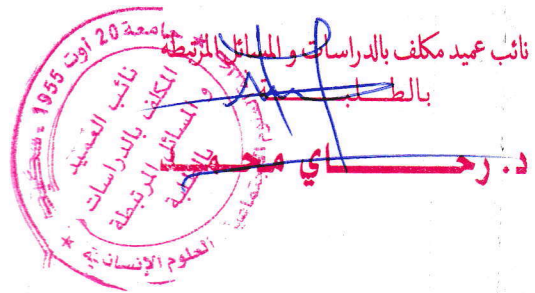 نائب عميد مكلف بالدراسات و المسائل المرتبطة
بالطلبة
د. رحاي محمد
جامعة 20 اوت 1955 - سكيكدة
نائب العميد
المكلف بالدراسات
و المسائل المرتبطة
بالطلبة
العلوم الإنسانية